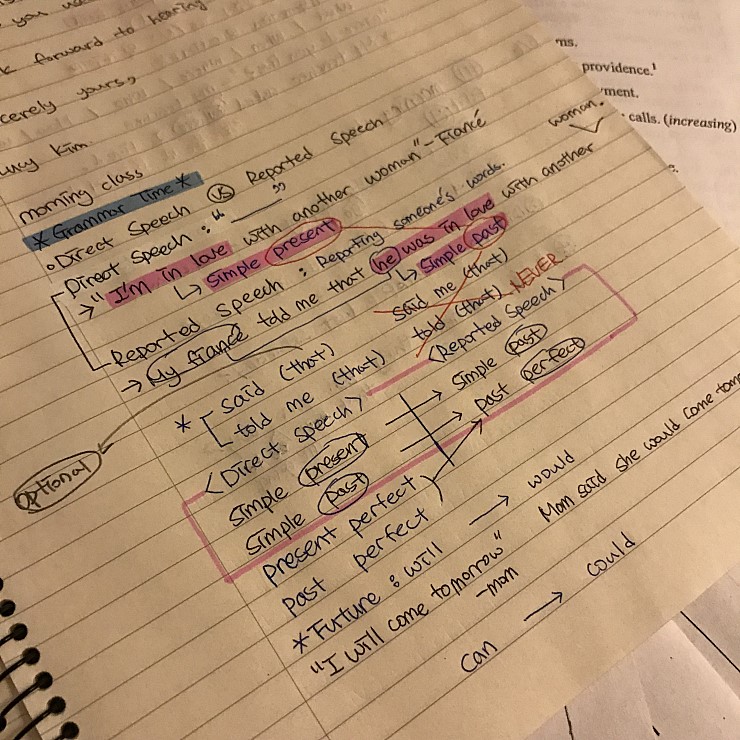 you
k forward to hearing
cerely yours,
ucy Kim.
morning class
* Grammar Time *
Direct Speech VS Reported Speech
Direct Speech : " ____ "
"I'm in love with another woman" - Fiancé
Simple present
Reported Speech : Reporting someone's words.
My fiancé told me that he was in love with another woman.
Simple past
* said (that)
told me (that)
said me (that)
told (that) NEVER
Optional
<Direct Speech> <Reported Speech>
Simple present → Simple past
Simple past → past perfect
present perfect
past perfect
* Future : will → would
"I will come tomorrow" - mom
Mom said she would come tomo
can → could
ns.
providence.¹
ment.
calls. (increasing)